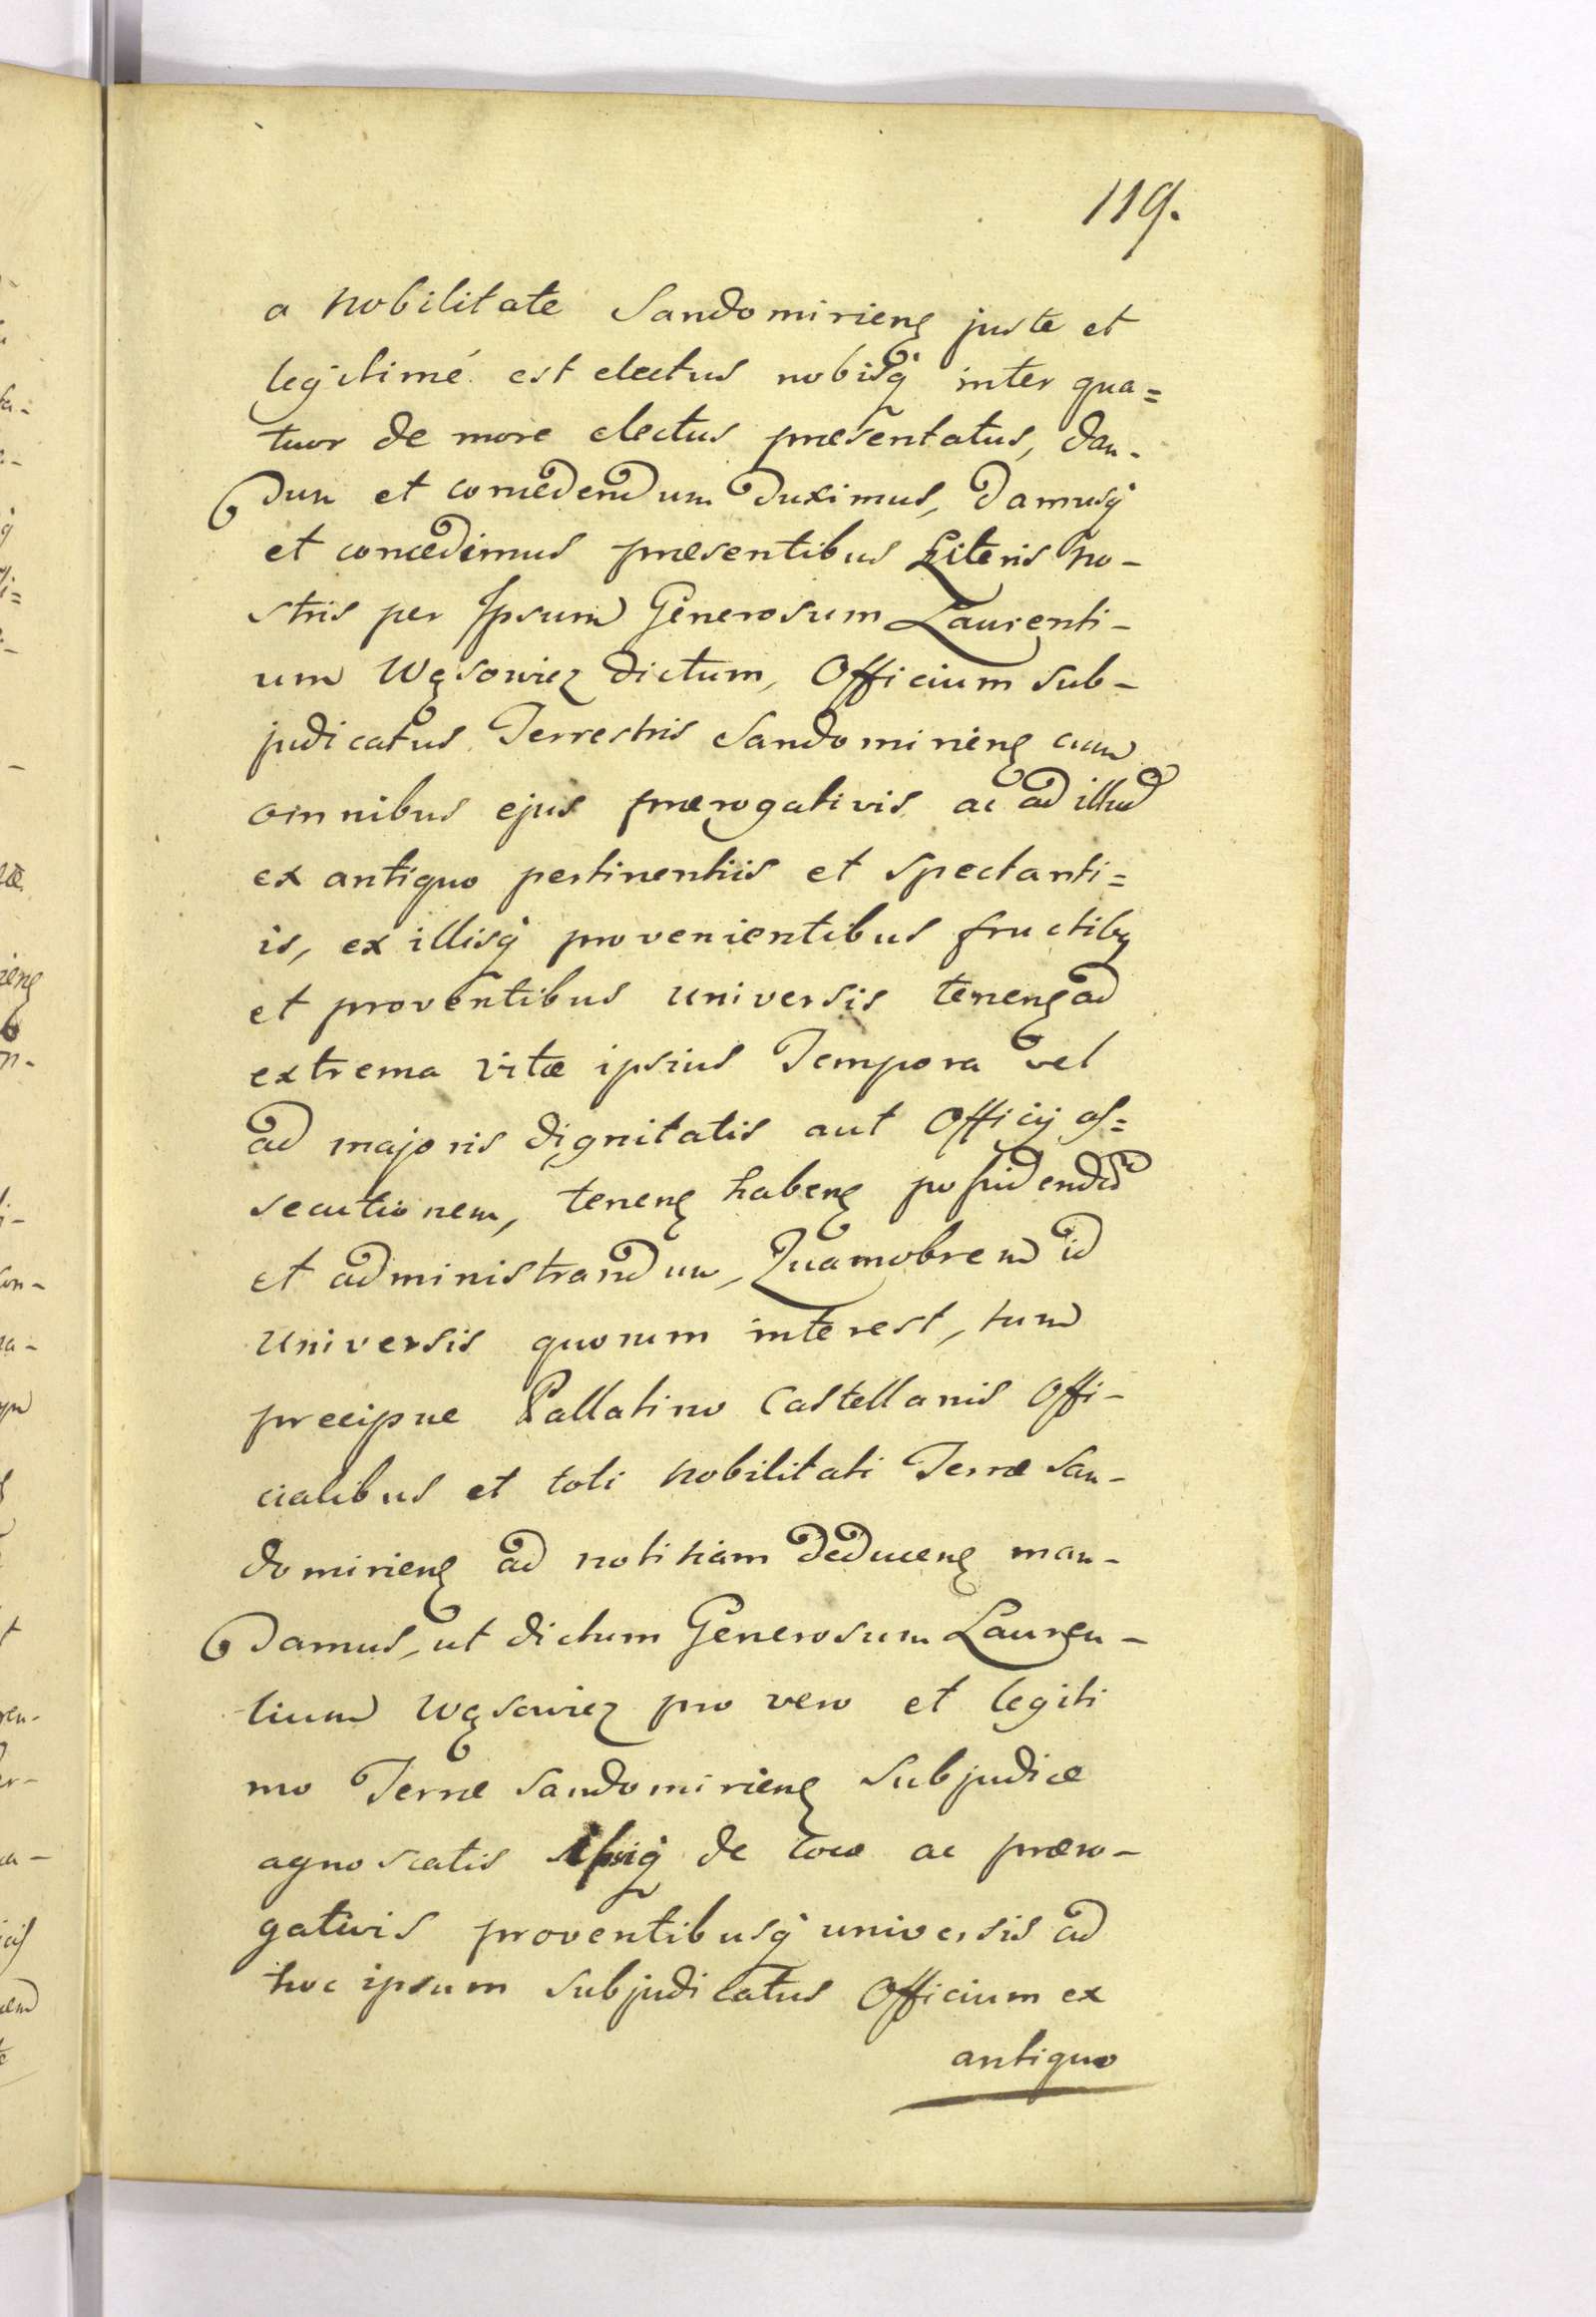 119.
a Nobilitate Sandomirieng juste et
legitimé est electus nobisq̃ inter qua=
tuor de more electus præsentatus, dan-
dum et concedendum duximus, damusq̃
et concedimus præsentibus Literis No-
stris per Ipsum Generosum Laurenti-
um Wąsowicz dictum, Officium sub-
judicatus Terrestris Sandomirieng cum
omnibus ejus prærogativis ac ad illud
ex antiquo pertinentiis et spectanti=
is, ex illisq̃ provenientibus fructibg
et proventibus universis teneng ad
extrema vitæ ipsius Tempora vel
ad majoris dignitatis aut Officij as=
secutionem, teneng habeng possidendũ
et administrandum, Quamobrem id
universis quorum interest, tum
precipue Pallatino Castellanis Offi-
cialibus et toti Nobilitati Terræ San-
domirieng ad notitiam deduceng man-
damus, ut dictum Generosum Lauren-
tium Wąsowicz pro vero et legiti
mo Terræ Sandomirieng Subjudice
agnoscatis ipsiq̃ de loco ac præro-
gativis proventibusq̃ universis ad
hoc ipsum subjudicatus Officium ex
antiquo